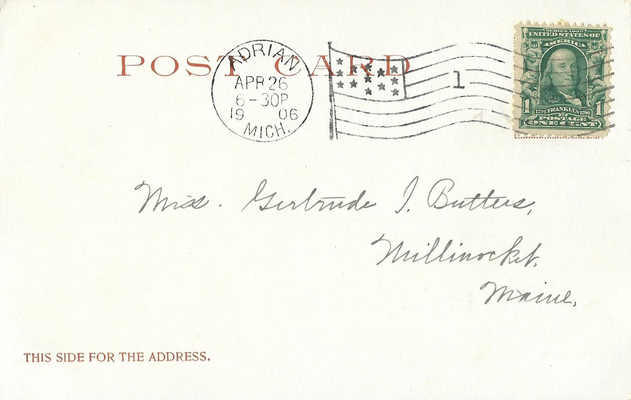 POST CARD
ADRIAN
APR 26
6-30P
19 06
MICH.
1
SERIES 1902
UNITED STATES OF
AMERICA
1 FRANKLIN 1
POSTAGE
ONE CENT
Miss. Gertrude I. Butters,
Millinocket.
Maine.
THIS SIDE FOR THE ADDRESS.